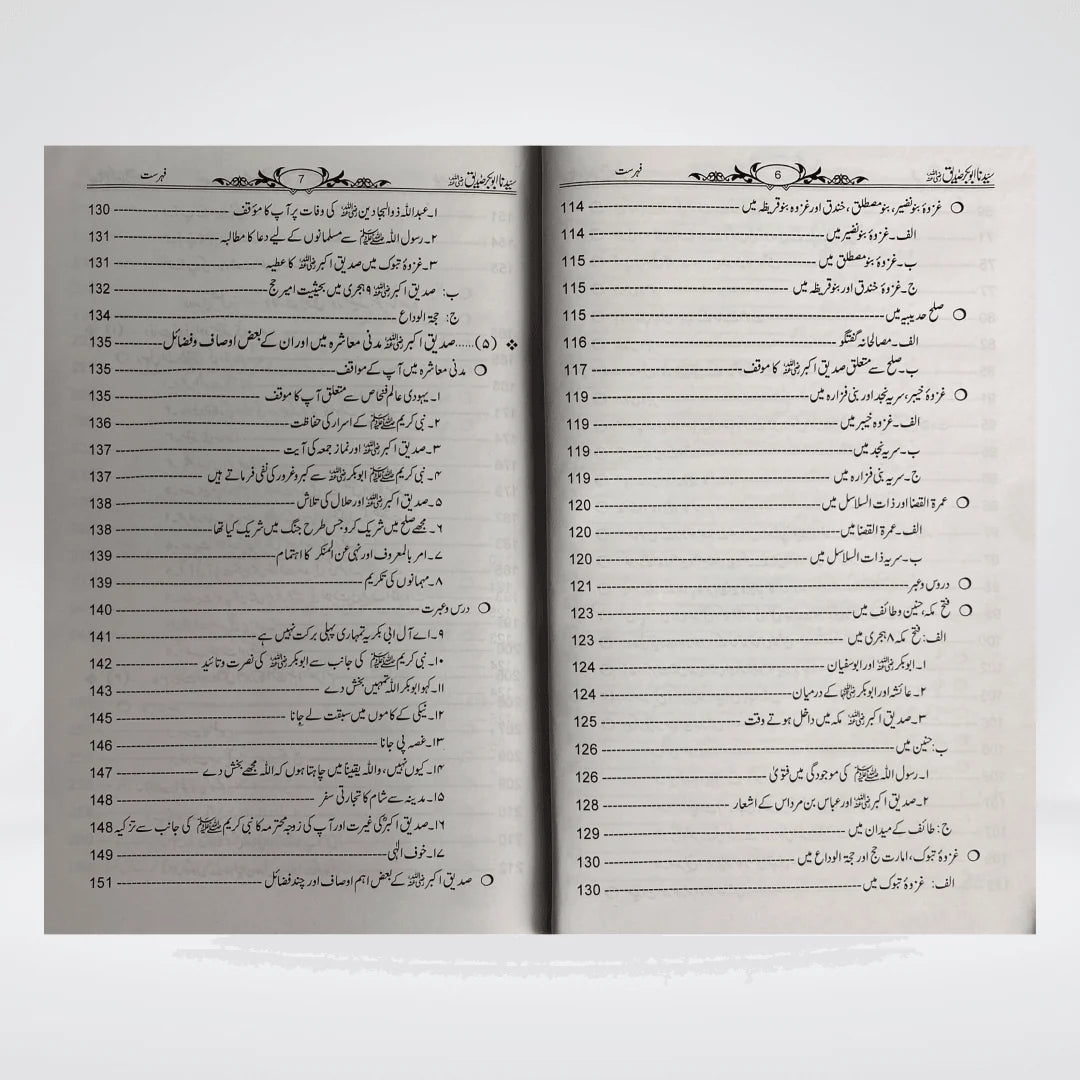 سیدنا ابوبکر صدیق رضی اللہ عنہ 6 فہرست
غزوۂ بنو نضیر، بنو مصطلق، خندق اور غزوہ بنو قریظہ میں 114
الف۔ غزوۂ بنو نضیر میں 114
ب۔ غزوۂ بنو مصطلق میں 115
ج۔ غزوۂ خندق اور بنو قریظہ میں 115
صلح حدیبیہ میں 115
الف۔ مصالحانہ گفتگو 116
ب۔ صلح سے متعلق صدیق اکبر رضی اللہ عنہ کا موقف 117
غزوۂ خیبر، سریہ نجد اور بنی فزارہ میں 119
الف۔ غزوہ خیبر میں 119
ب۔ سریہ نجد میں 119
ج۔ سریہ بنی فزارہ میں 119
عمرۃ القضا اور ذات السلاسل میں 120
الف۔ عمرۃ القضا میں 120
ب۔ سریہ ذات السلاسل میں 120
دروس وعبر 121
فتح مکہ، حنین وطائف میں 123
الف: فتح مکہ ۸ ہجری میں 123
۱۔ ابوبکر رضی اللہ عنہ اور ابوسفیان 124
۲۔ عائشہ اور ابوبکر رضی اللہ عنہما کے درمیان 124
۳۔ صدیق اکبر رضی اللہ عنہ مکہ میں داخل ہوتے وقت 125
ب: حنین میں 126
۱۔ رسول اللہ ﷺ کی موجودگی میں فتویٰ 126
۲۔ صدیق اکبر رضی اللہ عنہ اور عباس بن مرداس کے اشعار 128
ج: طائف کے میدان میں 129
غزوۂ تبوک، امارت حج اور حجۃ الوداع میں 130
الف: غزوۂ تبوک میں 130
سیدنا ابوبکر صدیق رضی اللہ عنہ 7 فہرست
۱۔ عبداللہ ذوالبجادین رضی اللہ عنہ کی وفات پر آپ کا مؤقف 130
۲۔ رسول اللہ ﷺ سے مسلمانوں کے لیے دعا کا مطالبہ 131
۳۔ غزوۂ تبوک میں صدیق اکبر رضی اللہ عنہ کا عطیہ 131
ب: صدیق اکبر رضی اللہ عنہ ۹ ہجری میں بحیثیت امیر حج 132
ج: حجۃ الوداع 134
❖ (۵)..... صدیق اکبر رضی اللہ عنہ مدنی معاشرہ میں اور ان کے بعض اوصاف وفضائل 135
مدنی معاشرہ میں آپ کے مواقف 135
۱۔ یہودی عالم فنحاص سے متعلق آپ کا موقف 135
۲۔ نبی کریم ﷺ کے اسرار کی حفاظت 136
۳۔ صدیق اکبر رضی اللہ عنہ اور نماز جمعہ کی آیت 137
۴۔ نبی کریم ﷺ ابوبکر رضی اللہ عنہ سے کبر وغرور کی نفی فرماتے ہیں 137
۵۔ صدیق اکبر رضی اللہ عنہ اور حلال کی تلاش 138
۶۔ مجھے صلح میں شریک کرو جس طرح جنگ میں شریک کیا تھا 138
۷۔ امر بالمعروف اور نہی عن المنکر کا اہتمام 139
۸۔ مہمانوں کی تکریم 139
درس وعبرت 140
۹۔ اے آل ابی بکر یہ تمہاری پہلی برکت نہیں ہے 141
۱۰۔ نبی کریم ﷺ کی جانب سے ابوبکر رضی اللہ عنہ کی نصرت وتائید 142
۱۱۔ کہو ابوبکر اللہ تمہیں بخش دے 143
۱۲۔ نیکی کے کاموں میں سبقت لے جانا 145
۱۳۔ غصہ پی جانا 146
۱۴۔ کیوں نہیں، واللہ یقیناً میں چاہتا ہوں کہ اللہ مجھے بخش دے 147
۱۵۔ مدینہ سے شام کا تجارتی سفر 148
۱۶۔ صدیق اکبرؓ کی غیرت اور آپ کی زوجہ محترمہ کا نبی کریم ﷺ کی جانب سے تزکیہ 148
۱۷۔ خوف الٰہی 149
صدیق اکبر رضی اللہ عنہ کے بعض اہم اوصاف اور چند فضائل 151